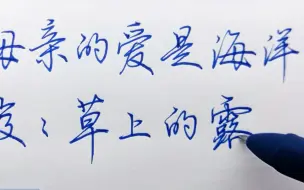 母亲的爱是海洋
草上的露